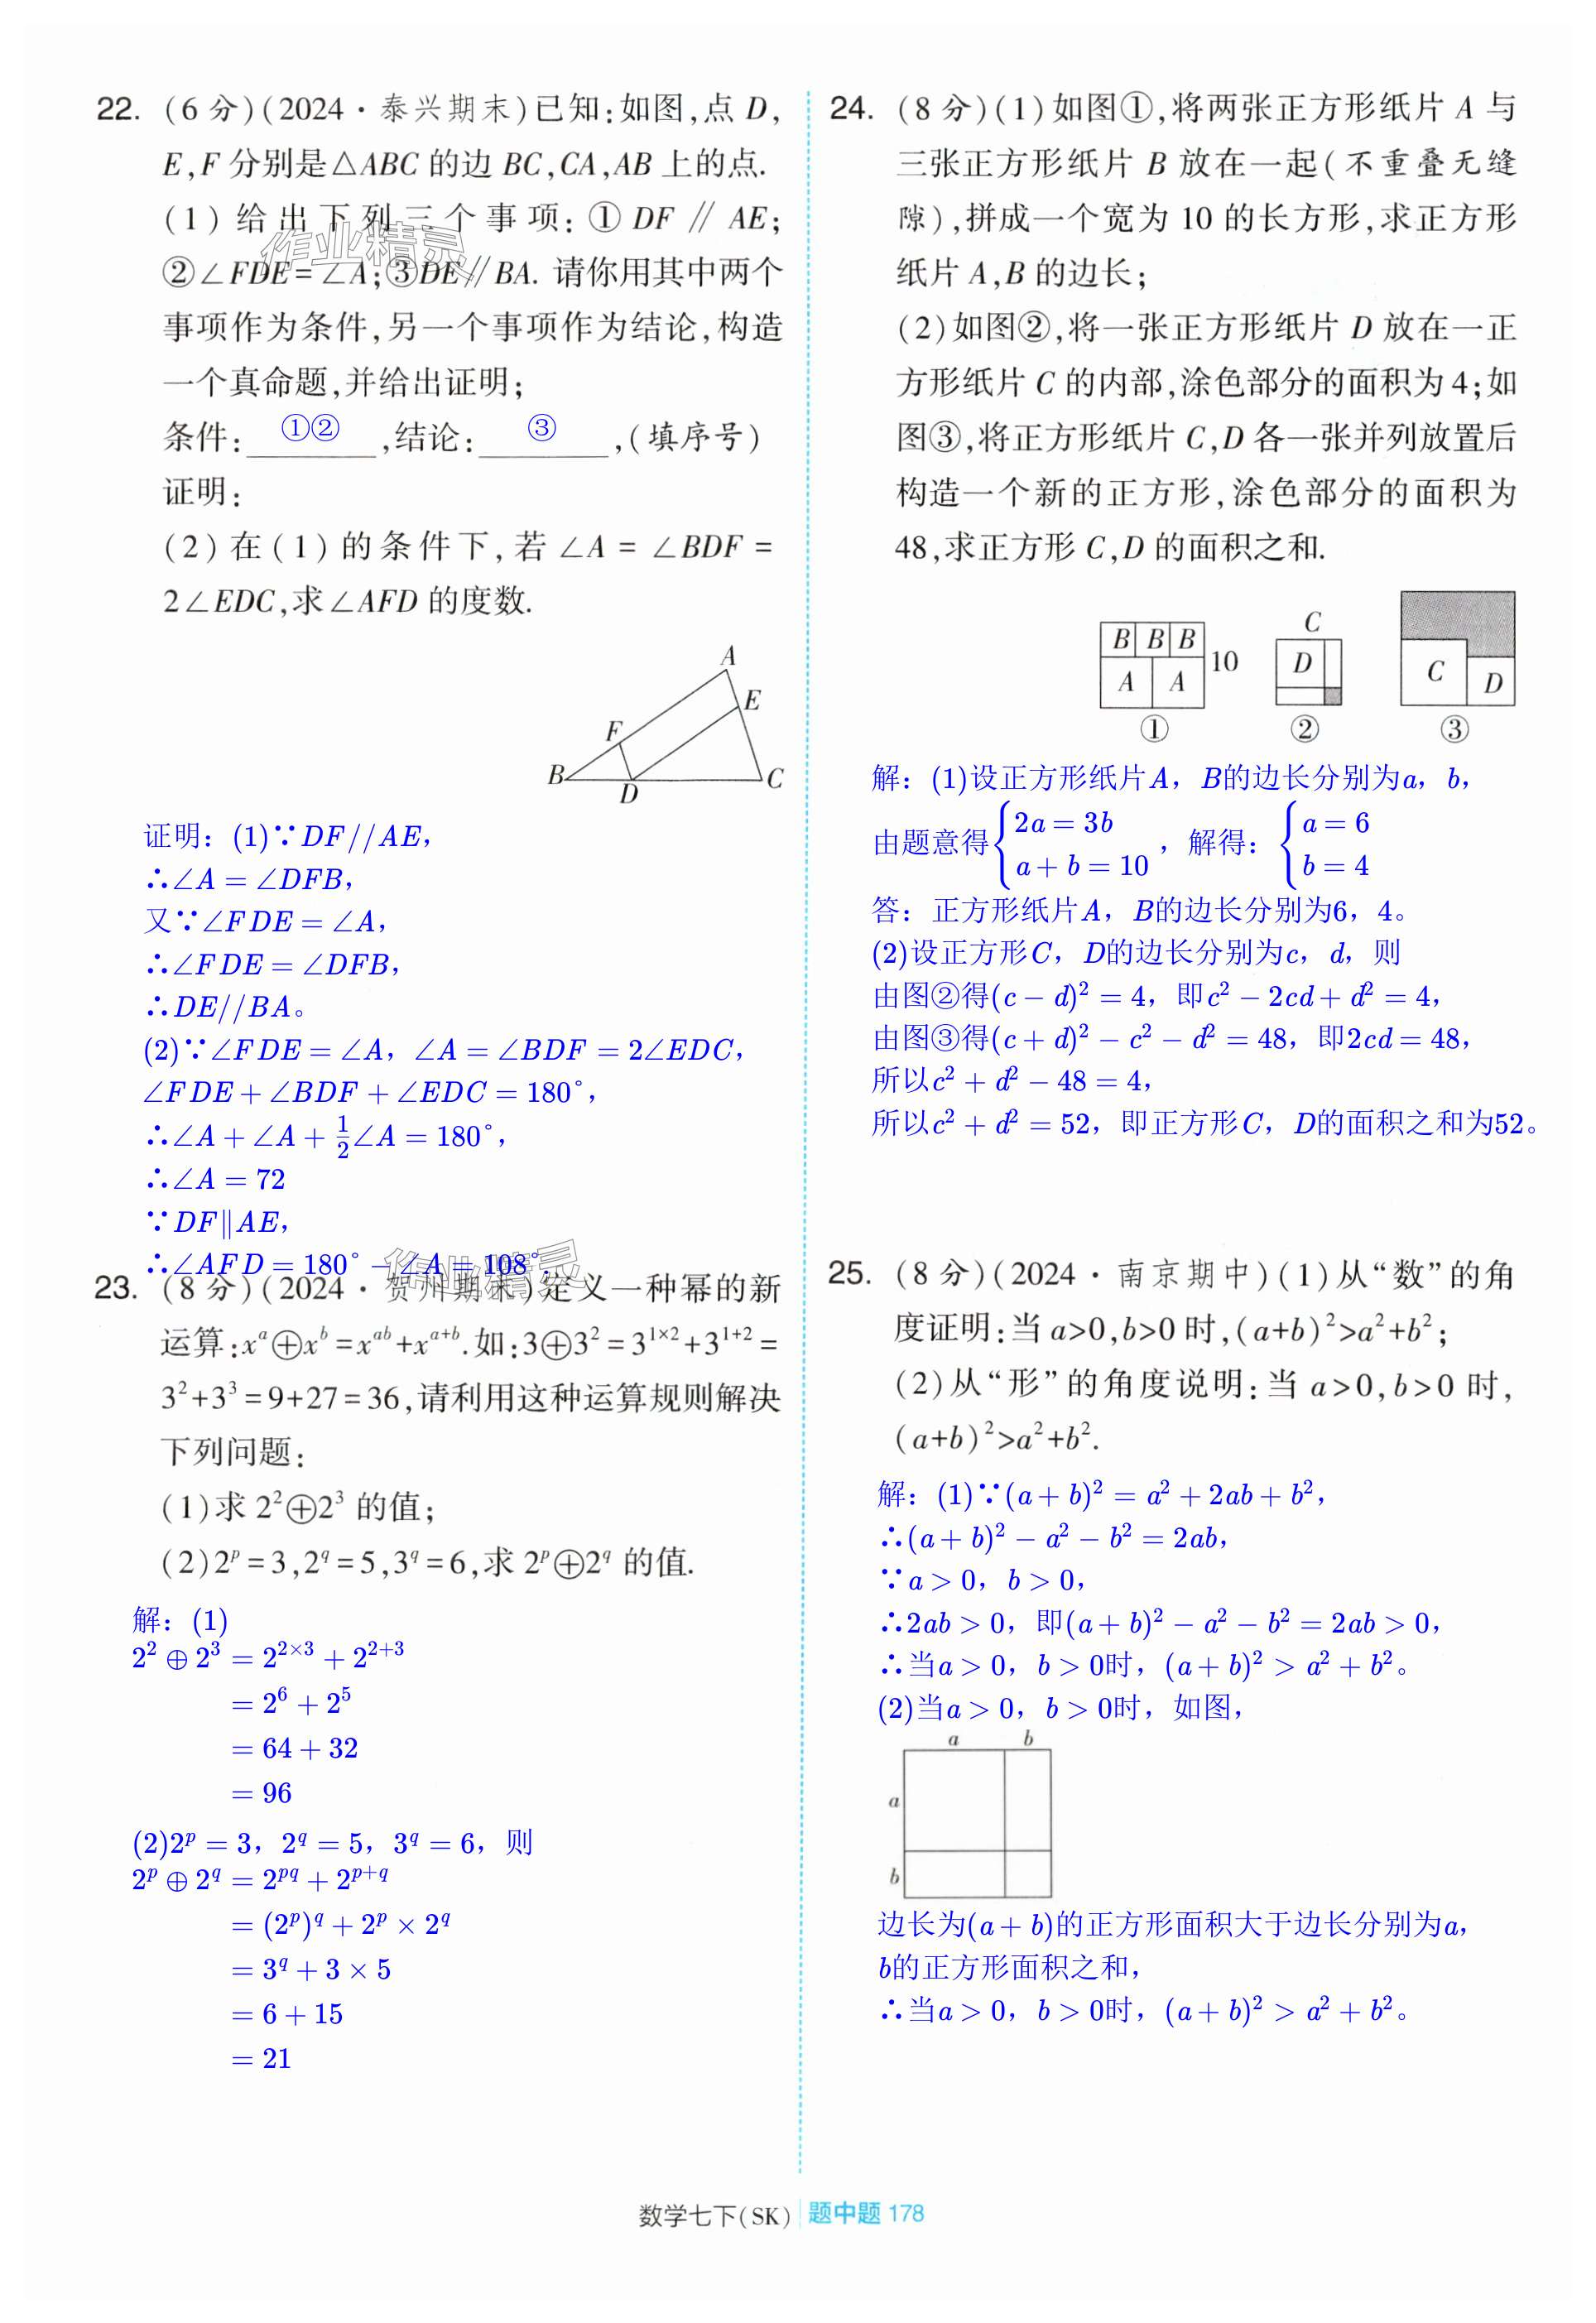 22. (6 分)(2024 · 泰兴期末)已知:如图,点 D,
E,F 分别是△ABC 的边 BC,CA,AB 上的点.
(1) 给出下列三个事项: ① DF ∥ AE;
②∠FDE=∠A;③DE∥BA. 请你用其中两个
事项作为条件,另一个事项作为结论,构造
一个真命题,并给出证明;
条件: ①② ,结论: ③ ,(填序号)
证明:
(2) 在 (1) 的条件下, 若 ∠A = ∠BDF =
2∠EDC,求∠AFD 的度数.
A
E
F
B
D
C
证明：(1)∵DF//AE，
∴∠A = ∠DFB，
又∵∠FDE = ∠A，
∴∠FDE = ∠DFB，
∴DE//BA。
(2)∵∠FDE = ∠A，∠A = ∠BDF = 2∠EDC，
∠FDE + ∠BDF + ∠EDC = 180°，
∴∠A + ∠A + 1/2∠A = 180°，
∴∠A = 72
∵DF∥AE，
∴∠AFD = 180° − ∠A = 108°.
作业精灵
作业精灵
23. (8 分)(2024 · 贺州期末)定义一种幂的新
运算:x^a⊕x^b=x^{ab}+x^{a+b}.如:3⊕3²=3^{1×2}+3^{1+2}=
3²+3³=9+27=36,请利用这种运算规则解决
下列问题:
(1)求 2²⊕2³ 的值;
(2)2^p=3,2^q=5,3^q=6,求 2^p⊕2^q 的值.
解：(1)
2² ⊕ 2³ = 2^{2×3} + 2^{2+3}
= 2⁶ + 2⁵
= 64 + 32
= 96
(2)2^p = 3，2^q = 5，3^q = 6，则
2^p ⊕ 2^q = 2^{pq} + 2^{p+q}
= (2^p)^q + 2^p × 2^q
= 3^q + 3 × 5
= 6 + 15
= 21
24. (8 分)(1)如图①,将两张正方形纸片 A 与
三张正方形纸片 B 放在一起(不重叠无缝
隙),拼成一个宽为 10 的长方形,求正方形
纸片 A,B 的边长;
(2)如图②,将一张正方形纸片 D 放在一正
方形纸片 C 的内部,涂色部分的面积为 4;如
图③,将正方形纸片 C,D 各一张并列放置后
构造一个新的正方形,涂色部分的面积为
48,求正方形 C,D 的面积之和.
B B B
A A
10
①
C
D
②
C D
③
解：(1)设正方形纸片A，B的边长分别为a，b，
由题意得{2a = 3b
a + b = 10 ，解得：{a = 6
b = 4
答：正方形纸片A，B的边长分别为6，4。
(2)设正方形C，D的边长分别为c，d，则
由图②得(c − d)² = 4，即c² − 2cd + d² = 4，
由图③得(c + d)² − c² − d² = 48，即2cd = 48，
所以c² + d² − 48 = 4，
所以c² + d² = 52，即正方形C，D的面积之和为52。
25. (8 分)(2024 · 南京期中)(1)从“数”的角
度证明:当 a>0,b>0 时,(a+b)²>a²+b²;
(2)从“形”的角度说明:当 a>0,b>0 时,
(a+b)²>a²+b².
解：(1)∵(a + b)² = a² + 2ab + b²，
∴(a + b)² − a² − b² = 2ab，
∵a > 0，b > 0，
∴2ab > 0，即(a + b)² − a² − b² = 2ab > 0，
∴当a > 0，b > 0时，(a + b)² > a² + b²。
(2)当a > 0，b > 0时，如图，
a b
a
b
边长为(a + b)的正方形面积大于边长分别为a，
b的正方形面积之和，
∴当a > 0，b > 0时，(a + b)² > a² + b²。
数学七下(SK) 题中题 178